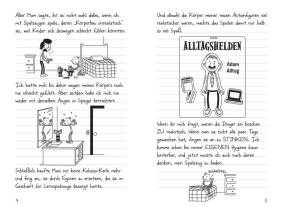 Aber Mom sagte, ihr sei nicht wohl dabei, wenn ich
mit Spielzeugen spiele, deren „Körperbau unrealistisch“
sei, weil Kinder sich deswegen schlecht fühlen könnten.
Ich hatte mich bis dahin wegen meines Körpers noch
nie schlecht gefühlt. Aber seitdem habe ich mich nie
wieder mit denselben Augen im Spiegel betrachtet.
Schließlich kaufte Mom mir keine Koloss-Kerle mehr
und fing an, sie durch Figuren zu ersetzen, die sie im
Geschäft für Lernspielzeuge besorgt hatte.
Und obwohl der Körper meiner neuen Actionfiguren viel
realistischer waren, machte das Spielen damit nur halb
so viel Spaß.
ALLTAGSHELDEN
Adam
Alltag
Wenn ihr mich fragt, waren die Dinger ein bisschen
ZU realistisch. Wenn man sie nicht alle paar Tage
gewaschen hat, fingen sie an zu STINKEN. Ich
komme schon bei meiner EIGENEN Hygiene kaum
hinterher, und jetzt musste ich mich noch daran
denken, mein Spielzeug zu baden.